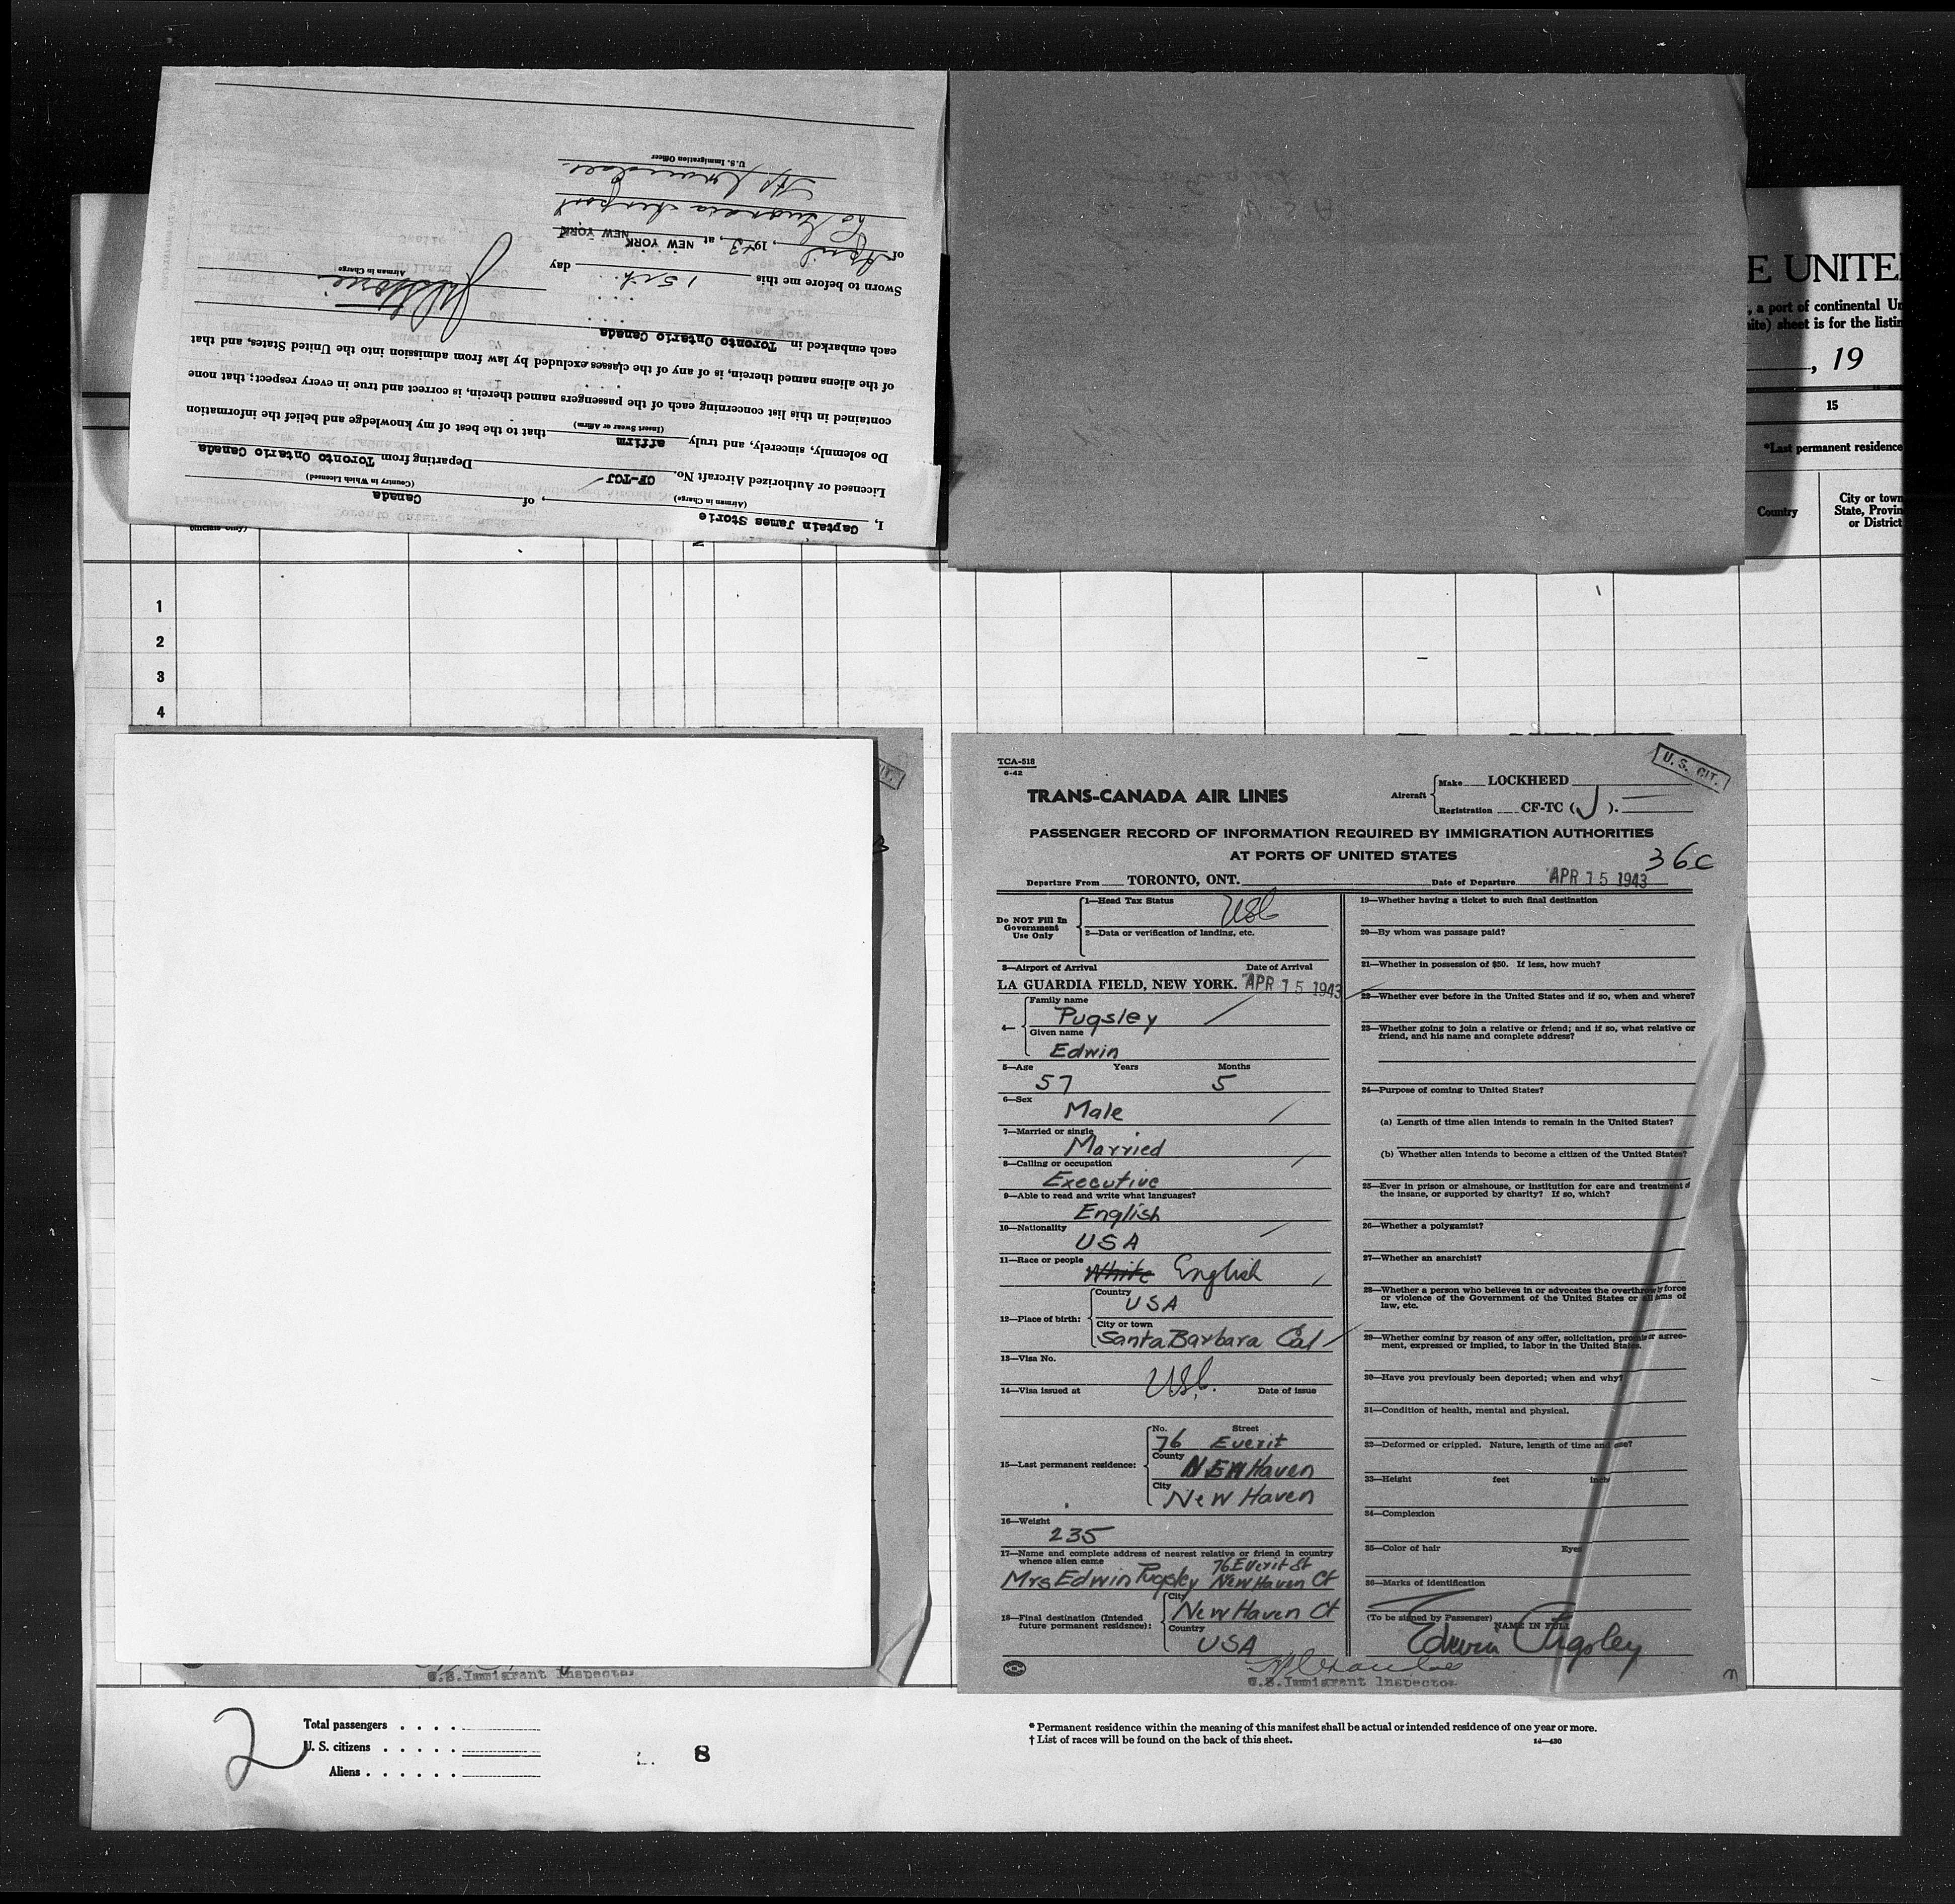 I, Captain James Storie, of Canada
(Airman in Charge) (Country in Which Licensed)
Licensed or Authorized Aircraft No. CF-TCJ Departing from Toronto Ontario Canada
Do solemnly, sincerely, and truly affirm that to the best of my knowledge and belief the information
(Insert Swear or Affirm)
contained in this list concerning each of the passengers named therein, is correct and true in every respect; that none
of the aliens named therein, is of any of the classes excluded by law from admission into the United States, and that
each embarked in Toronto Ontario Canada
Airman in Charge
Sworn to before me this 15th day
of April, 1943, at NEW YORK NEW YORK
U.S. Immigration Officer
E UNITE
, a port of continental Un
ite) sheet is for the listin
, 19
15
*Last permanent residence
Country
City or town
State, Provin
or District
1
2
3
4
TCA-518
6-42
TRANS-CANADA AIR LINES
Aircraft
Make LOCKHEED
Registration CF-TC (J).
U. S. CIT.
PASSENGER RECORD OF INFORMATION REQUIRED BY IMMIGRATION AUTHORITIES
AT PORTS OF UNITED STATES
36c
Departure From TORONTO, ONT. Date of Departure APR 15 1943
Do NOT Fill In
Government
Use Only
1—Head Tax Status USC
2—Data or verification of landing, etc.
3—Airport of Arrival Date of Arrival
LA GUARDIA FIELD, NEW YORK. APR 15 1943
4—
Family name
Pugsley
Given name
Edwin
5—Age Years Months
57 5
6—Sex
Male
7—Married or single
Married
8—Calling or occupation
Executive
9—Able to read and write what languages?
English
10—Nationality
USA
11—Race or people
White English
12—Place of birth:
Country
USA
City or town
Santa Barbara Cal
13—Visa No.
USC.
14—Visa issued at Date of issue
15—Last permanent residence:
No. Street
76 Everit
County
NEW Haven
City
New Haven
16—Weight
235
17—Name and complete address of nearest relative or friend in country
whence alien came
76 Everit St
Mrs Edwin Pugsley New Haven Ct
18—Final destination (Intended
future permanent residence):
City
New Haven Ct
Country
USA
19—Whether having a ticket to such final destination
20—By whom was passage paid?
21—Whether in possession of $50. If less, how much?
22—Whether ever before in the United States and if so, when and where?
23—Whether going to join a relative or friend; and if so, what relative or
friend, and his name and complete address?
24—Purpose of coming to United States?
(a) Length of time alien intends to remain in the United States?
(b) Whether alien intends to become a citizen of the United States?
25—Ever in prison or almshouse, or institution for care and treatment of
the insane, or supported by charity? If so, which?
26—Whether a polygamist?
27—Whether an anarchist?
28—Whether a person who believes in or advocates the overthrow by force
or violence of the Government of the United States or all forms of
law, etc.
29—Whether coming by reason of any offer, solicitation, promise or agree-
ment, expressed or implied, to labor in the United States.
30—Have you previously been deported; when and why?
31—Condition of health, mental and physical.
32—Deformed or crippled. Nature, length of time and cause?
33—Height feet inch
34—Complexion
35—Color of hair Eyes
36—Marks of identification
(To be signed by Passenger)
NAME IN FULL
Edwin Pugsley
U.S. Immigrant Inspector
U.S. Immigrant Inspector
2
Total passengers
U. S. citizens
Aliens
8
* Permanent residence within the meaning of this manifest shall be actual or intended residence of one year or more.
† List of races will be found on the back of this sheet.
14—430